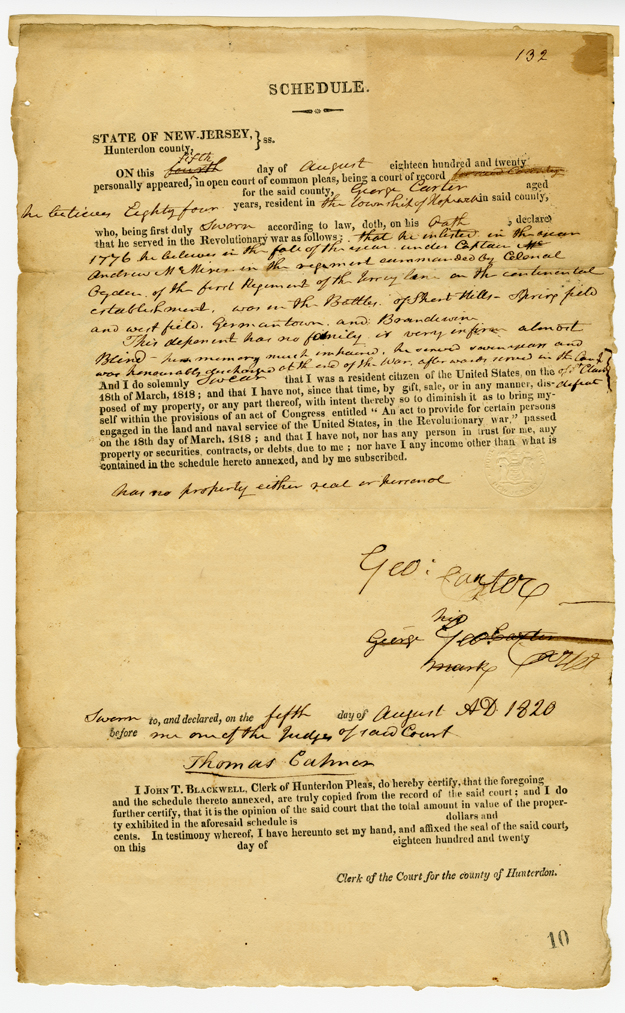 132
SCHEDULE.
STATE OF NEW-JERSEY, } ss.
Hunterdon county,
fifth
ON this fourth day of August eighteen hundred and twenty
personally appeared, in open court of common pleas, being a court of record
for the said county, George Carter aged
he believes Eighty four years, resident in the township of Hopewell in said county,
who, being first duly Sworn according to law, doth, on his Oath ; declare
that he served in the Revolutionary war as follows; that he inlisted in the year
1776 he believes in the fall of the year under Captain
Andrew in the regiment commanded by Colonal
Ogden of the first Regiment of the Jersey line on the continental
establishment, was in the Battles of Short Hills - Spring field
and west field. Germantown and Brandiwine
This deponent has no family is very infirm almost
Blind - his memory much impaired, he served seven years and
was honourably discharged at the end of the War, after wards served in the
of St Clairs
defeat
And I do solemnly Swear that I was a resident citzen of the United States, on the
18th of March, 1818 ; and that I have not, since that time, by gift, sale, or in any manner, dis-
posed of my property, or any part thereof, with intent thereby so to diminish it as to bring my-
self within the provisions of an act of Congress entitled “ An act to provide for certain persons
engaged in the land and naval service of the United States, in the Revolutionary war,” passed
on the 18th day of March, 1818 ; and that I have not, nor has any person in trust for me, any
property or securities, contracts, or debts, due to me ; nor have I any income other than what is
contained in the schedule hereto annexed, and by me subscribed.
has no property either real or personal
Geo: Carter
his
George Geo Carter
mark
Sworn to, and declared, on the fifth day of August AD 1820
before me one of the Judges of said Court
Thomas
I JOHN T. BLACKWELL, Clerk of Hunterdon Pleas, do hereby certify, that the foregoing
and the schedule thereto annexed, are truly copied from the record of the said court ; and I do
further certify, that it is the opinion of the said court that the total amount in value of the proper-
ty exhibited in the aforesaid schedule is dollars and
cents. In testimony whereof, I have hereunto set my hand, and affixed the seal of the said court,
on this day of eighteen hundred and twenty
Clerk of the Court for the county of Hunterdon.
10